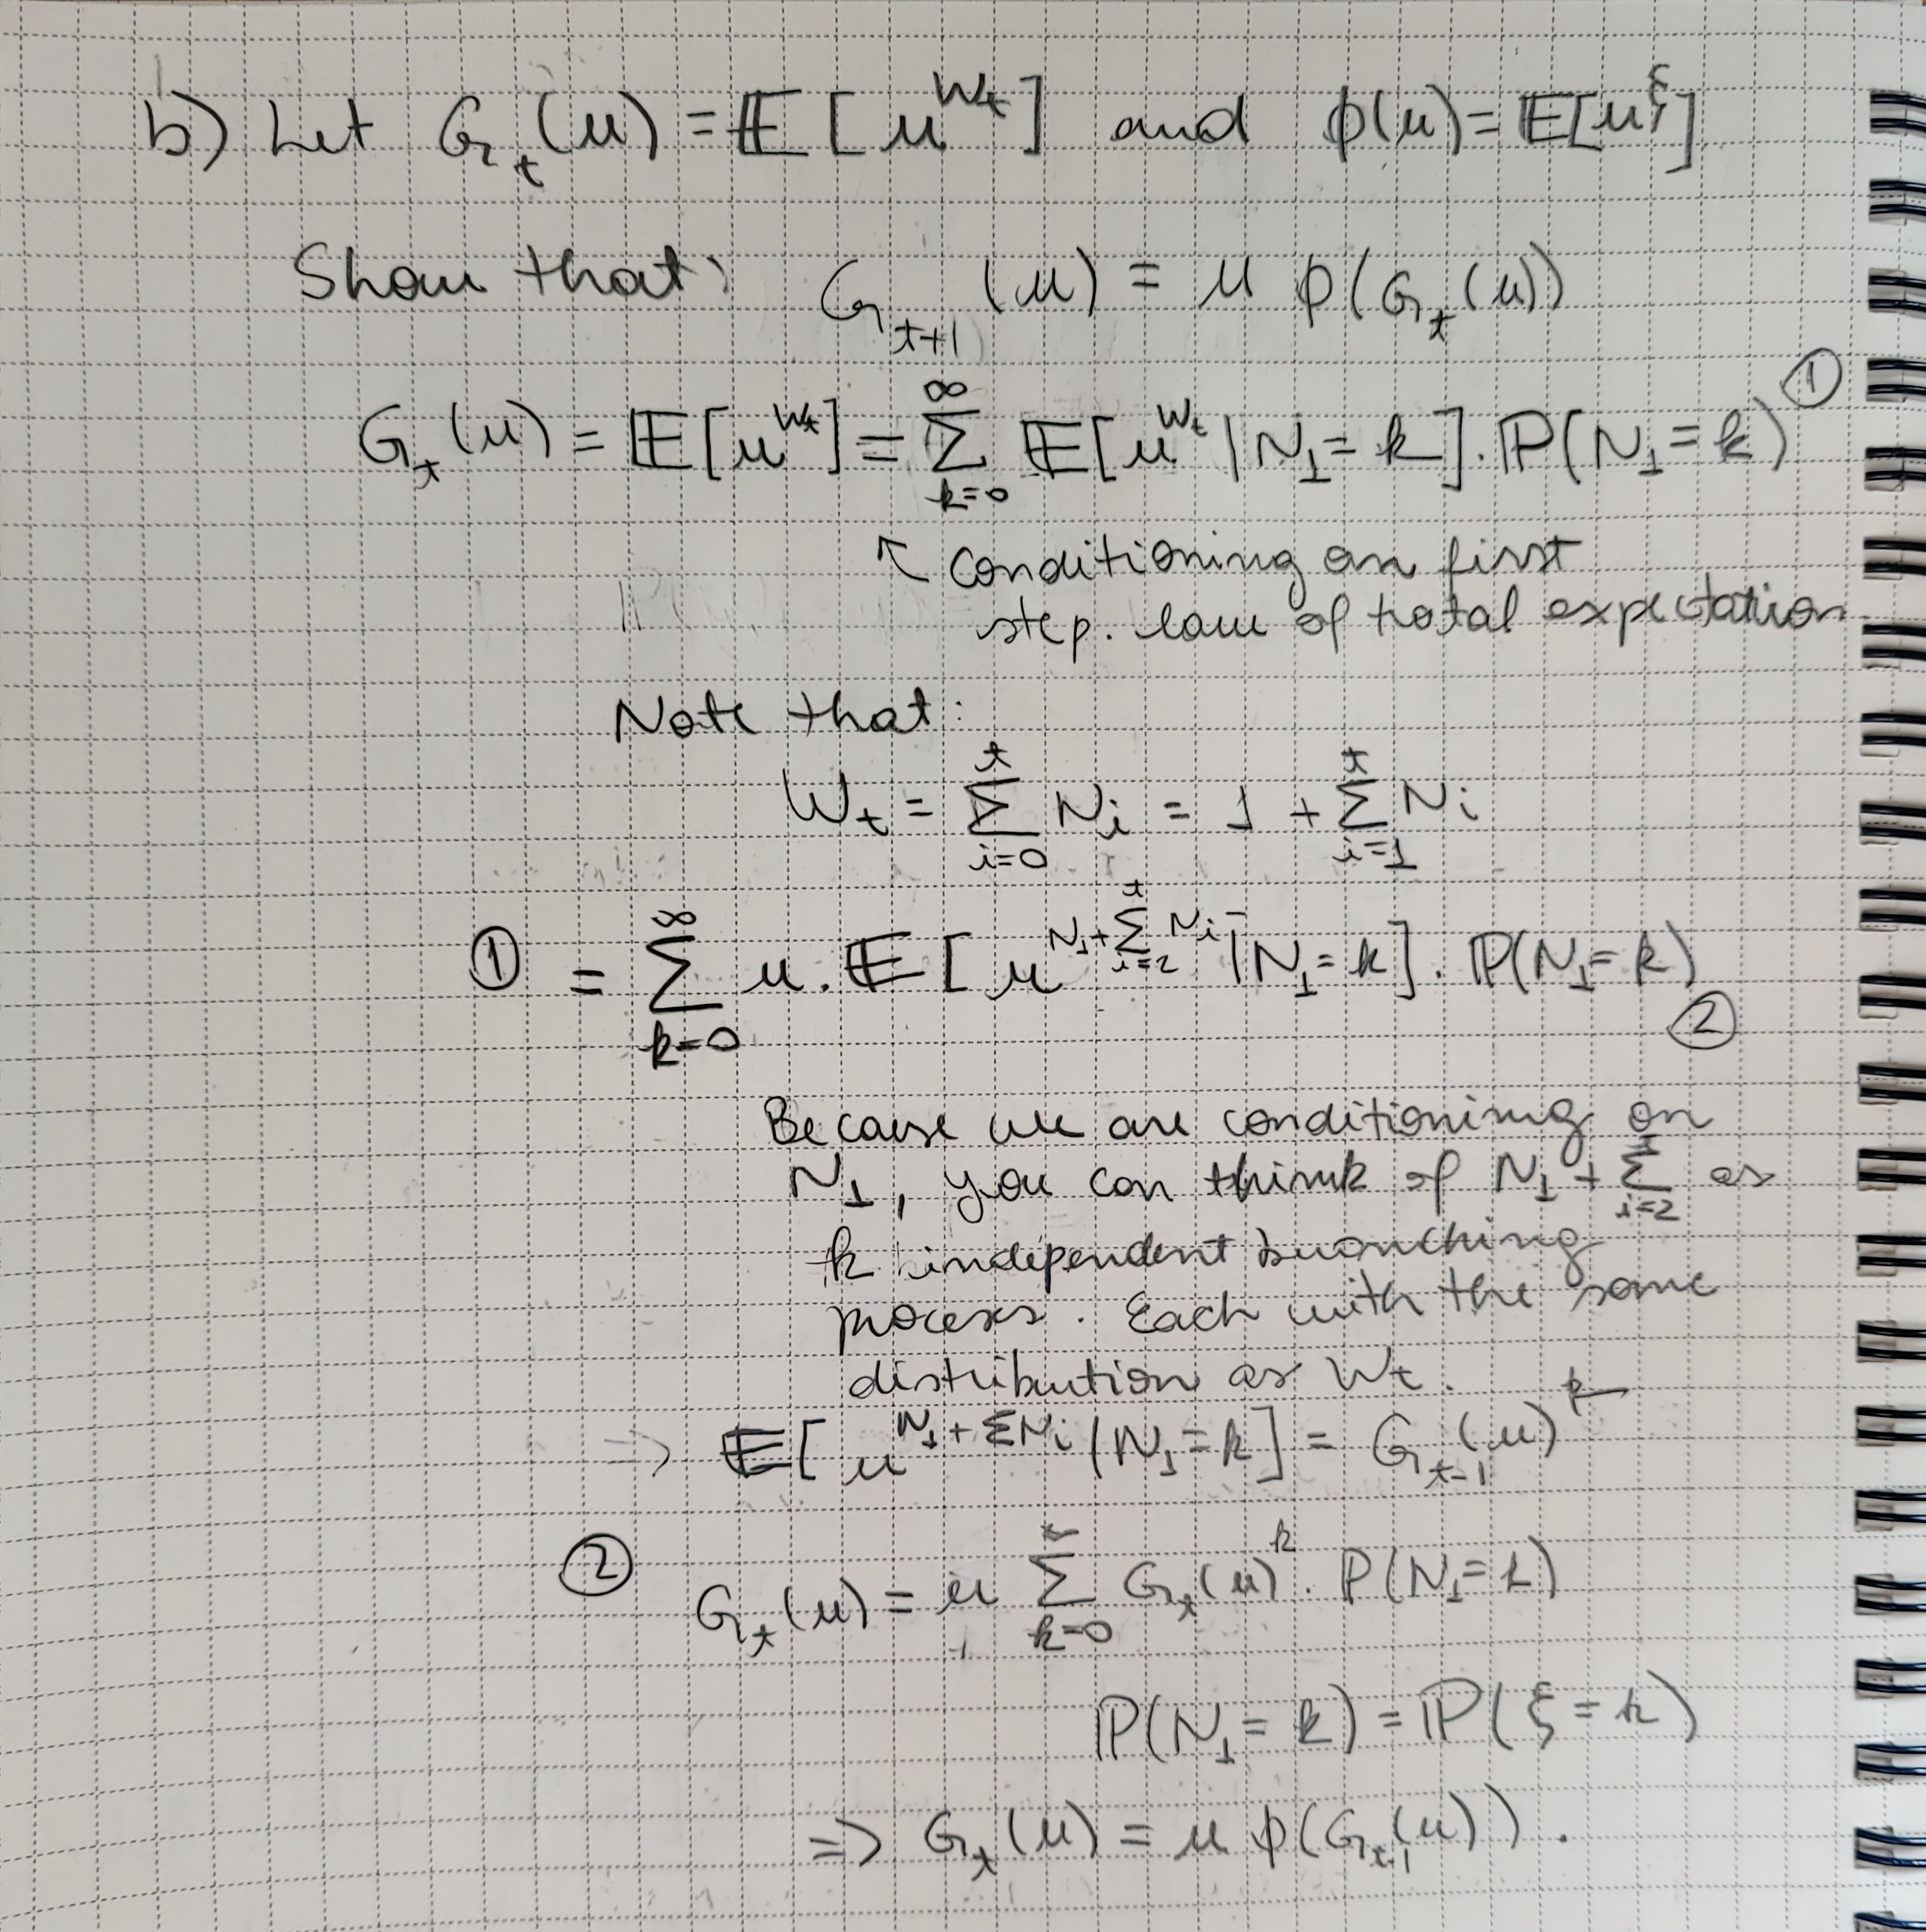 b) Let G_t(u) = 𝔼[u^{W_t}] and ϕ(u) = 𝔼[u^ξ]
Show that: G_{t+1}(u) = u ϕ(G_t(u))
G_t(u) = 𝔼[u^{W_t}] = ∑_{k=0}^{∞} 𝔼[u^{W_t} | N_1 = k] . ℙ(N_1 = k) ①
↖ conditioning on first
step. law of total expectation
Note that:
W_t = ∑_{i=0}^{t} N_i = 1 + ∑_{i=1}^{t} N_i
① = ∑_{k=0}^{∞} u . 𝔼[u^{N_1 + ∑_{i=2}^{t} N_i} | N_1 = k] . ℙ(N_1 = k)
②
Because we are conditioning on
N_1, you can think of N_1 + ∑_{i=2}^{t} as
k independent branching
process. Each with the same
distribution as W_t.
⇒ 𝔼[u^{N_1 + ΣN_i} | N_1 = k] = G_{t-1}(u)^k
② G_t(u) = u ∑_{k=0}^{∞} G_t(u)^k . ℙ(N_1 = k)
ℙ(N_1 = k) = ℙ(ξ = k)
⇒ G_t(u) = u ϕ(G_{t-1}(u)).